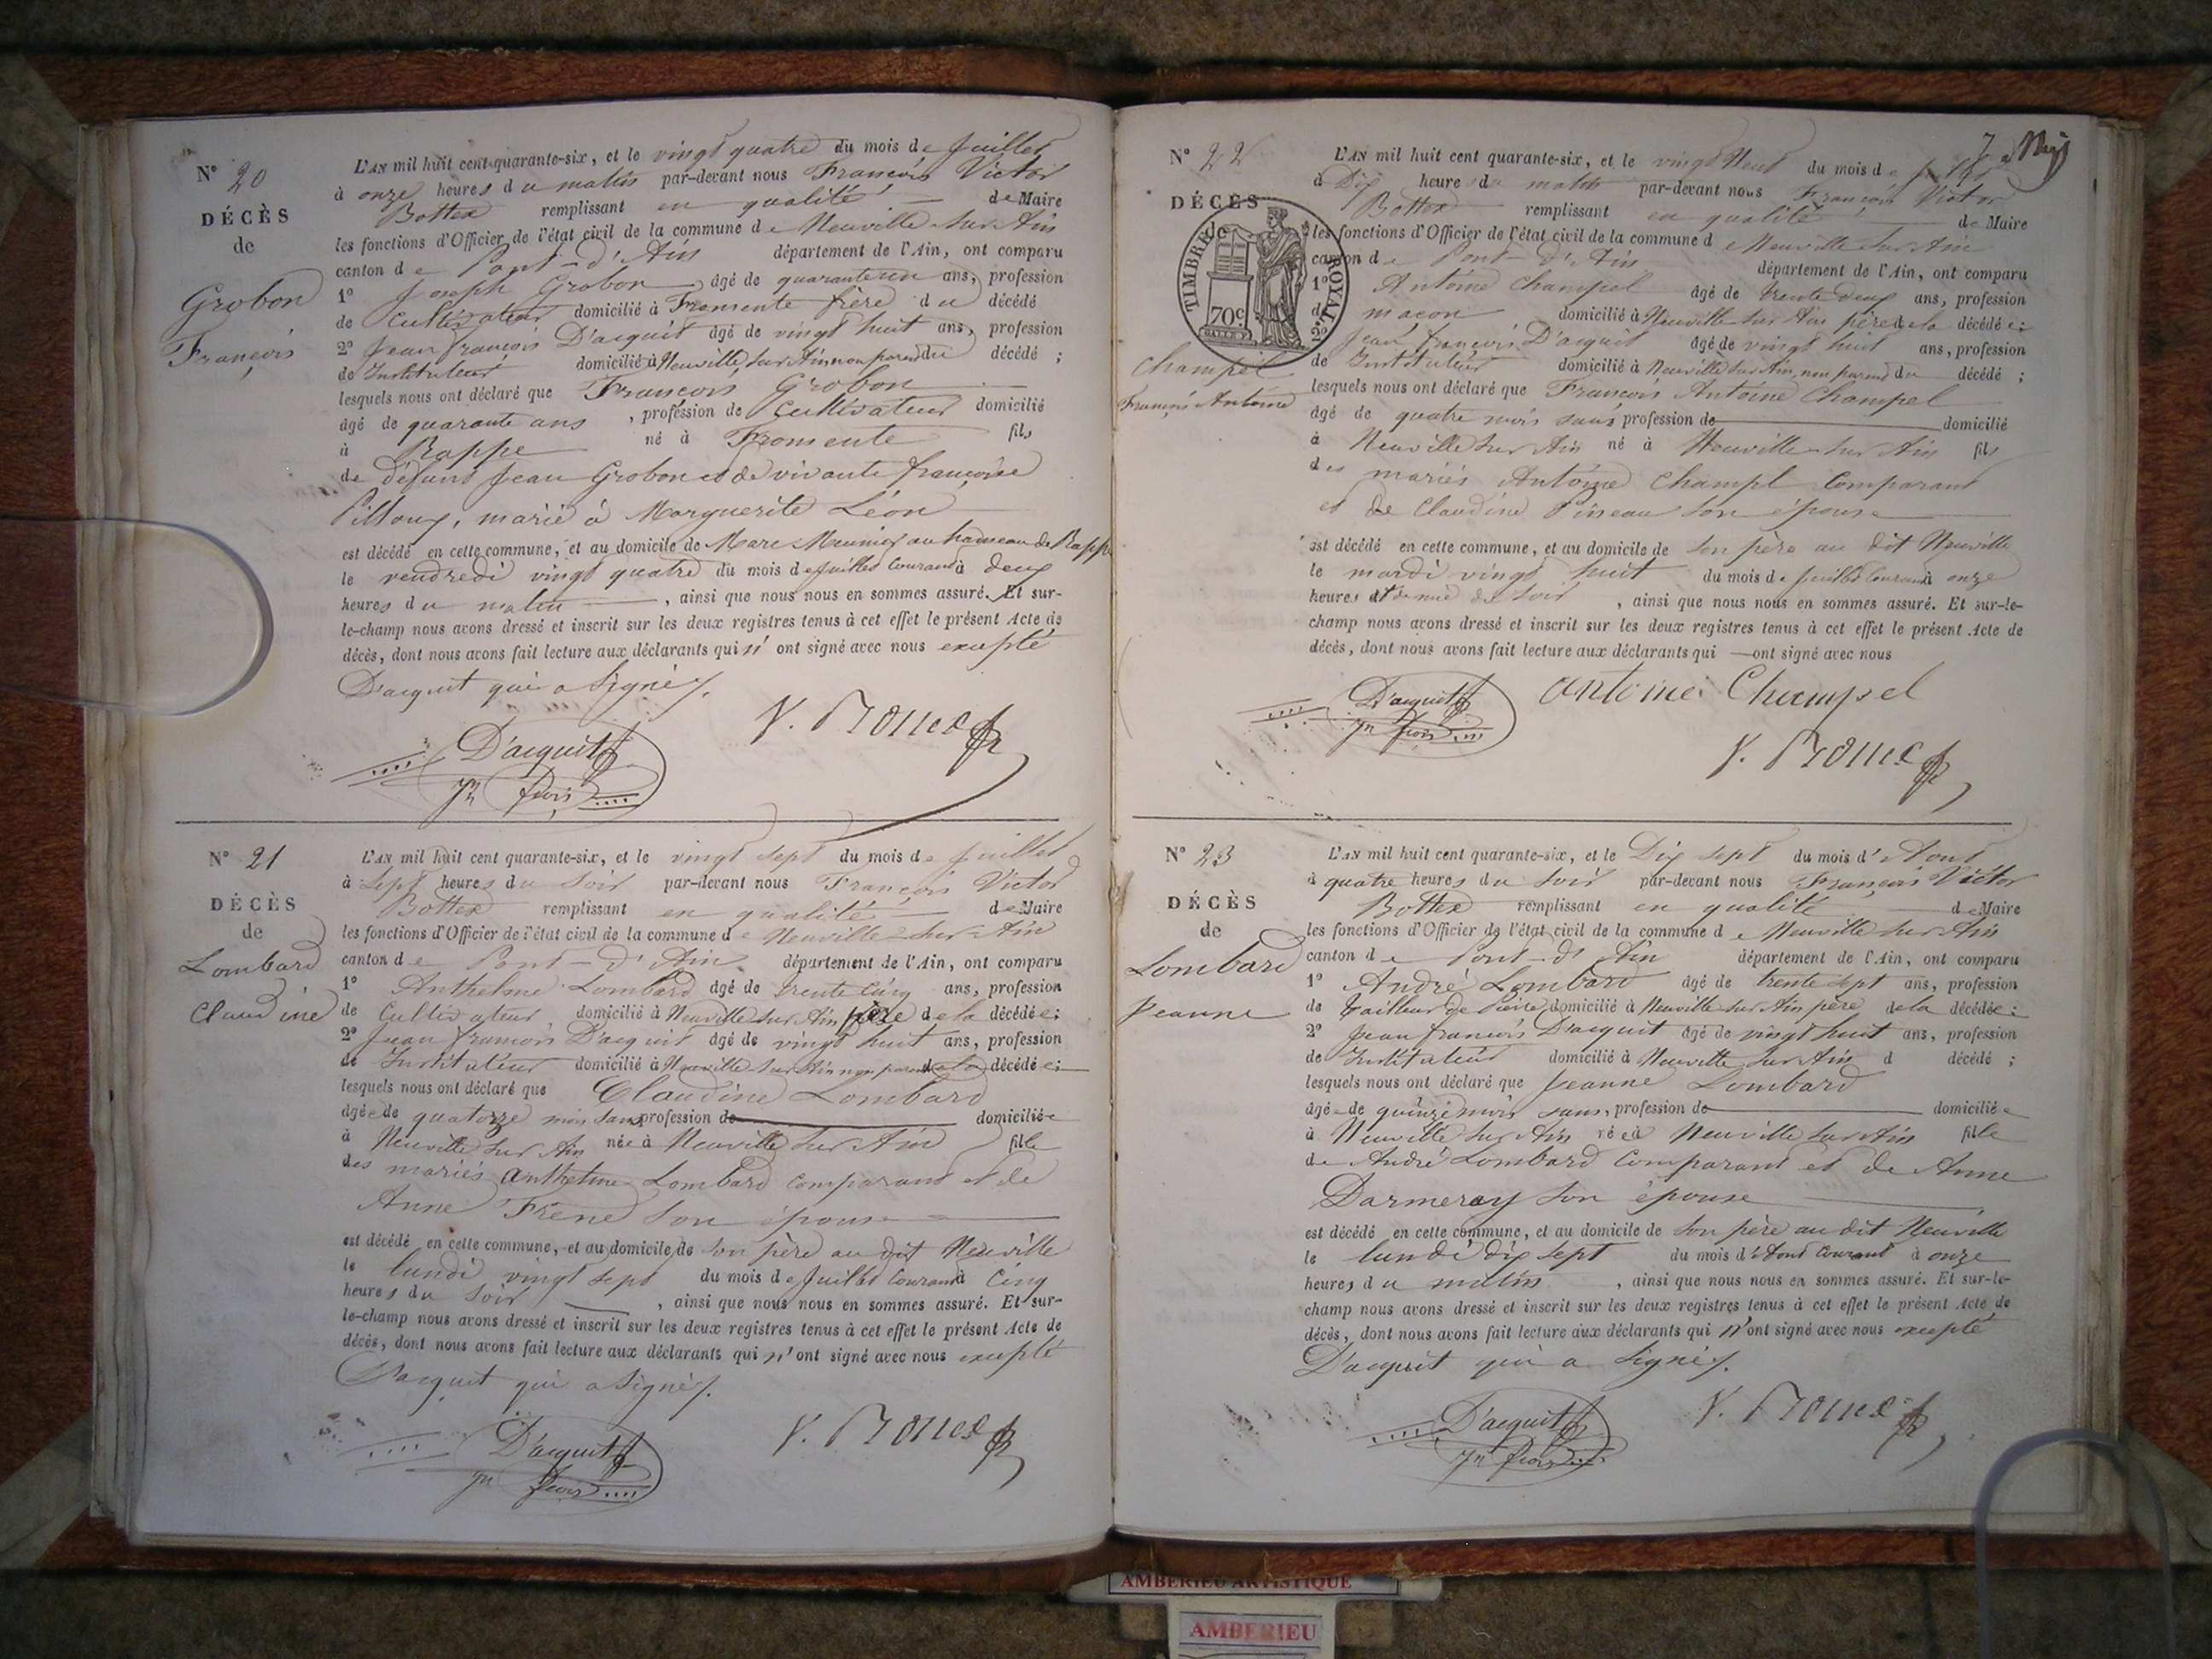 N° 20
DÉCÈS
de
Grobon
François
L'AN mil huit cent quarante-six, et le vingt quatre du mois de Juillet
à onze heures du matin par-devant nous François Victor
Bottex remplissant en qualité de Maire
les fonctions d'Officier de l'état civil de la commune de Neuville sur Ain
canton de Pont-d'Ain département de l'Ain, ont comparu
1° Joseph Grobon âgé de quarante un ans, profession
de cultivateur domicilié à Fromente frère du décédé
2° Jean françois D'acquit âgé de vingt huit ans, profession
de Instituteur domicilié à Neuville sur Ain non parent du décédé ;
lesquels nous ont déclaré que François Grobon
âgé de quarante ans , profession de cultivateur domicilié
à Rappe né à Fromente fils
de défunt Jean Grobon et de vivante françoise
Pilloux, marié à Marguerite Léon
est décédé en cette commune, et au domicile de Marc Meunier au hameau de Rappe
le vendredi vingt quatre du mois de Juillet courant à deux
heures du matin , ainsi que nous nous en sommes assuré. Et sur-
le-champ nous avons dressé et inscrit sur les deux registres tenus à cet effet le présent Acte de
décès, dont nous avons fait lecture aux déclarants qui n'ont signé avec nous excepté
D'acquit qui a signé.
D'acquit
Jn fçois
V. Bottex
N° 21
DÉCÈS
de
Lombard
Claudine
L'AN mil huit cent quarante-six, et le vingt sept du mois de Juillet
à sept heures du soir par-devant nous François Victor
Bottex remplissant en qualité de Maire
les fonctions d'Officier de l'état civil de la commune de Neuville sur Ain
canton de Pont-d'Ain département de l'Ain, ont comparu
1° Anthelme Lombard âgé de trente cinq ans, profession
de Cultivateur domicilié à Neuville sur Ain père de la décédée ;
2° Jean françois D'acquit âgé de vingt huit ans, profession
de Instituteur domicilié à Neuville sur Ain non parent de la décédée ;
lesquels nous ont déclaré que Claudine Lombard
âgée de quatorze mois sans profession de domiciliée
à Neuville sur Ain née à Neuville sur Ain fille
des mariés anthelme Lombard comparant et de
Anne Frène son épouse
est décédé en cette commune, et au domicile de son père au dit Neuville
le lundi vingt sept du mois de Juillet courant à cinq
heures du soir , ainsi que nous nous en sommes assuré. Et sur-
le-champ nous avons dressé et inscrit sur les deux registres tenus à cet effet le présent Acte de
décès, dont nous avons fait lecture aux déclarants qui n'ont signé avec nous excepté
D'acquit qui a signé.
D'acquit
Jn fçois
V. Bottex
7
N° 22
DÉCÈS
TIMBRE ROYAL
70c
Champel
François Antoine
L'AN mil huit cent quarante-six, et le vingt Neuf du mois de Juillet
à Dix heures du matin par-devant nous François Victor
Bottex remplissant en qualité de Maire
les fonctions d'Officier de l'état civil de la commune de Neuville sur Ain
canton de Pont-d'Ain département de l'Ain, ont comparu
1° Antoine Champel âgé de trente deux ans, profession
de maçon domicilié à Neuville sur Ain père de la décédée ;
2° Jean françois D'acquit âgé de vingt huit ans, profession
de Instituteur domicilié à Neuville sur Ain, non parent du décédé ;
lesquels nous ont déclaré que François Antoine Champel
âgé de quatre mois sans profession de domicilié
à Neuville sur Ain né à Neuville sur Ain fils
des mariés Antoine Champl Comparant
et de Claudine Pineau son épouse
est décédé en cette commune, et au domicile de son père au dit Neuville
le mardi vingt huit du mois de Juillet courant à onze
heures et demie du soir , ainsi que nous nous en sommes assuré. Et sur-le-
champ nous avons dressé et inscrit sur les deux registres tenus à cet effet le présent Acte de
décès, dont nous avons fait lecture aux déclarants qui ont signé avec nous
D'acquit
Jn fçois
antoine Champel
V. Bottex
N° 23
DÉCÈS
de
Lombard
Jeanne
L'AN mil huit cent quarante-six, et le Dix sept du mois d'Aout
à quatre heures du soir par-devant nous François Victor
Bottex remplissant en qualité de Maire
les fonctions d'Officier de l'état civil de la commune de Neuville sur Ain
canton de Pont-d'Ain département de l'Ain, ont comparu
1° André Lombard âgé de trente sept ans, profession
de Tailleur de Pierre domicilié à Neuville sur Ain père de la décédée ;
2° Jean françois D'acquit âgé de vingt huit ans, profession
de Instituteur domicilié à Neuville sur Ain d décédé ;
lesquels nous ont déclaré que Jeanne Lombard
âgée de quinze mois sans, profession de domiciliée
à Neuville sur Ain née à Neuville sur Ain fille
de André Lombard Comparant et de Anne
Darmeray son épouse
est décédé en cette commune, et au domicile de son père au dit Neuville
le lundi dix sept du mois d'Aout courant à onze
heures du matin , ainsi que nous nous en sommes assuré. Et sur-le-
champ nous avons dressé et inscrit sur les deux registres tenus à cet effet le présent Acte de
décès, dont nous avons fait lecture aux déclarants qui n'ont signé avec nous excepté
D'acquit qui a signé.
D'acquit
Jn fçois
V. Bottex
AMBERIEU ARTISTIQUE
AMBERIEU